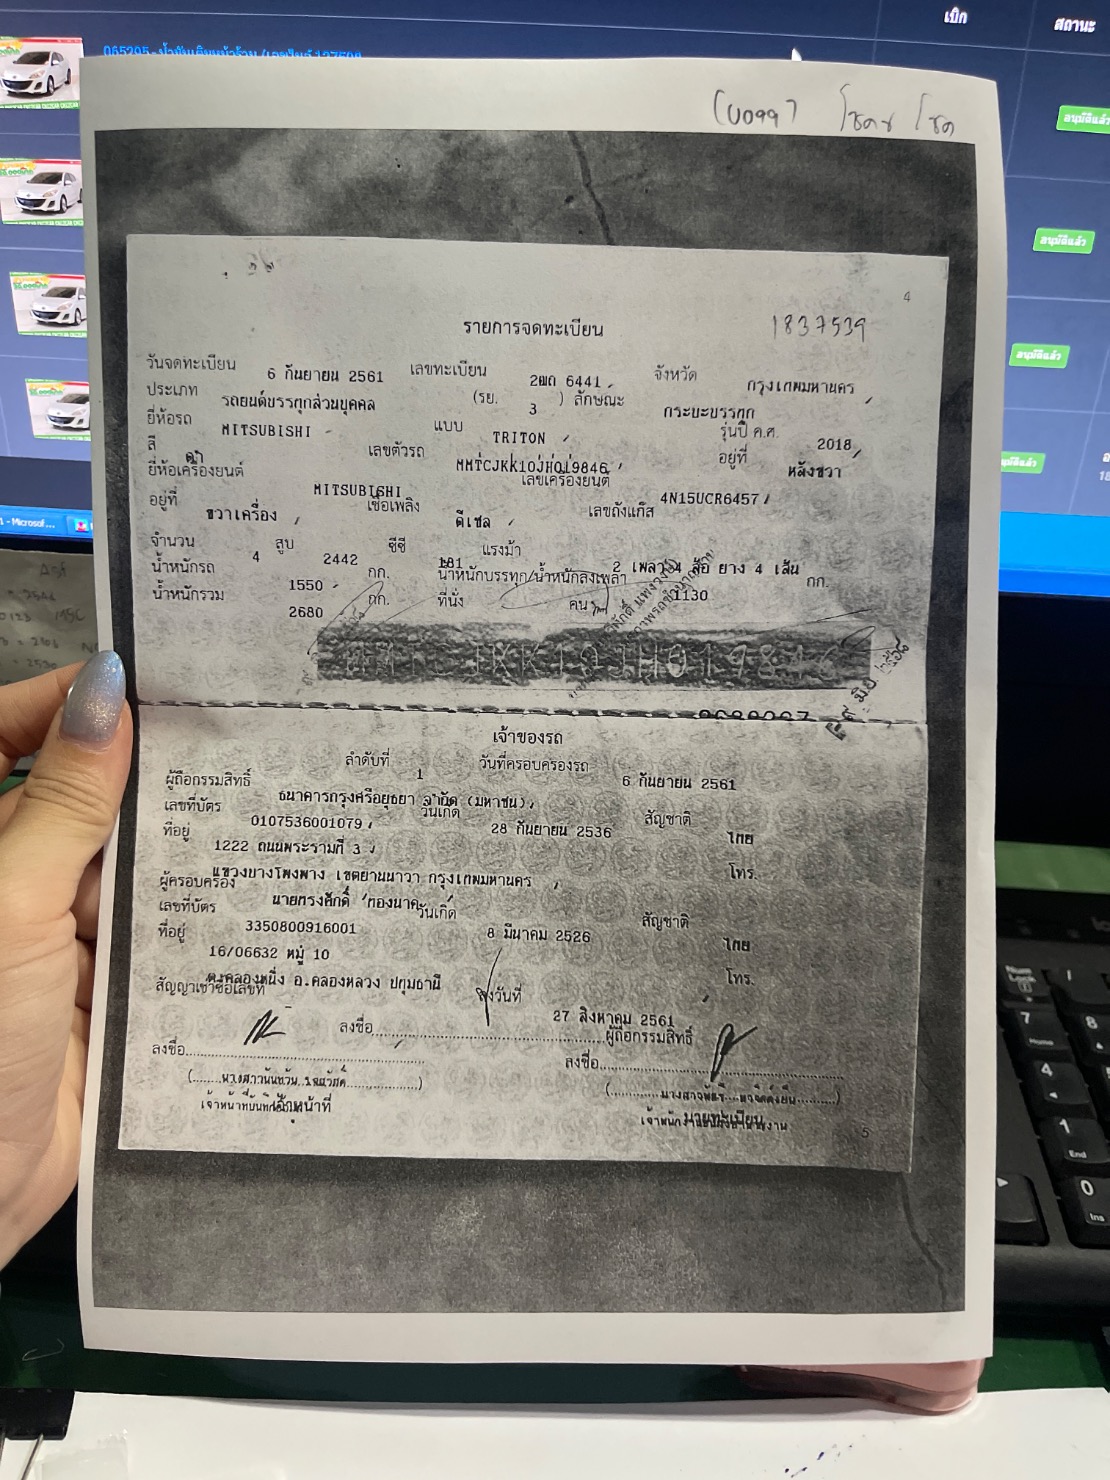 เบิก
สถานะ
อนุมัติแล้ว
อนุมัติแล้ว
อนุมัติแล้ว
4
รายการจดทะเบียน
1837539
วันจดทะเบียน 6 กันยายน 2561 เลขทะเบียน 2ฒถ 6441 จังหวัด กรุงเทพมหานคร
ประเภท รถยนต์บรรทุกส่วนบุคคล (รย. 3 ) ลักษณะ กระบะบรรทุก
ยี่ห้อรถ MITSUBISHI แบบ TRITON รุ่นปี ค.ศ. 2018
สี ดำ เลขตัวรถ MMTCJKK10JH019846 อยู่ที่ หลังขวา
ยี่ห้อเครื่องยนต์ MITSUBISHI เลขเครื่องยนต์ 4N15UCR6457
อยู่ที่ ขวาเครื่อง เชื้อเพลิง ดีเซล เลขถังแก๊ส
จำนวน 4 สูบ 2442 ซีซี 181 แรงม้า 2 เพลา 4 ล้อ ยาง 4 เส้น
น้ำหนักรถ 1550 กก. น้ำหนักบรรทุก/น้ำหนักลงเพลา 1130 กก.
น้ำหนักรวม 2680 กก. ที่นั่ง คน
เจ้าของรถ
ลำดับที่ 1 วันที่ครอบครองรถ 6 กันยายน 2561
ผู้ถือกรรมสิทธิ์ ธนาคารกรุงศรีอยุธยา จำกัด (มหาชน)
เลขที่บัตร 0107536001079 วันเกิด 28 กันยายน 2536 สัญชาติ ไทย
ที่อยู่ 1222 ถนนพระรามที่ 3
แขวงบางโพงพาง เขตยานนาวา กรุงเทพมหานคร โทร.
ผู้ครอบครอง นายทรงศักดิ์ ทองนาค
เลขที่บัตร 3350800916001 วันเกิด 8 มีนาคม 2526 สัญชาติ ไทย
ที่อยู่ 16/06632 หมู่ 10
ต.คลองหนึ่ง อ.คลองหลวง ปทุมธานี โทร.
สัญญาเช่าซื้อเลขที่ ลงวันที่ 27 สิงหาคม 2561
ลงชื่อ ผู้ถือกรรมสิทธิ์
ลงชื่อ ลงชื่อ
นายทะเบียน
5